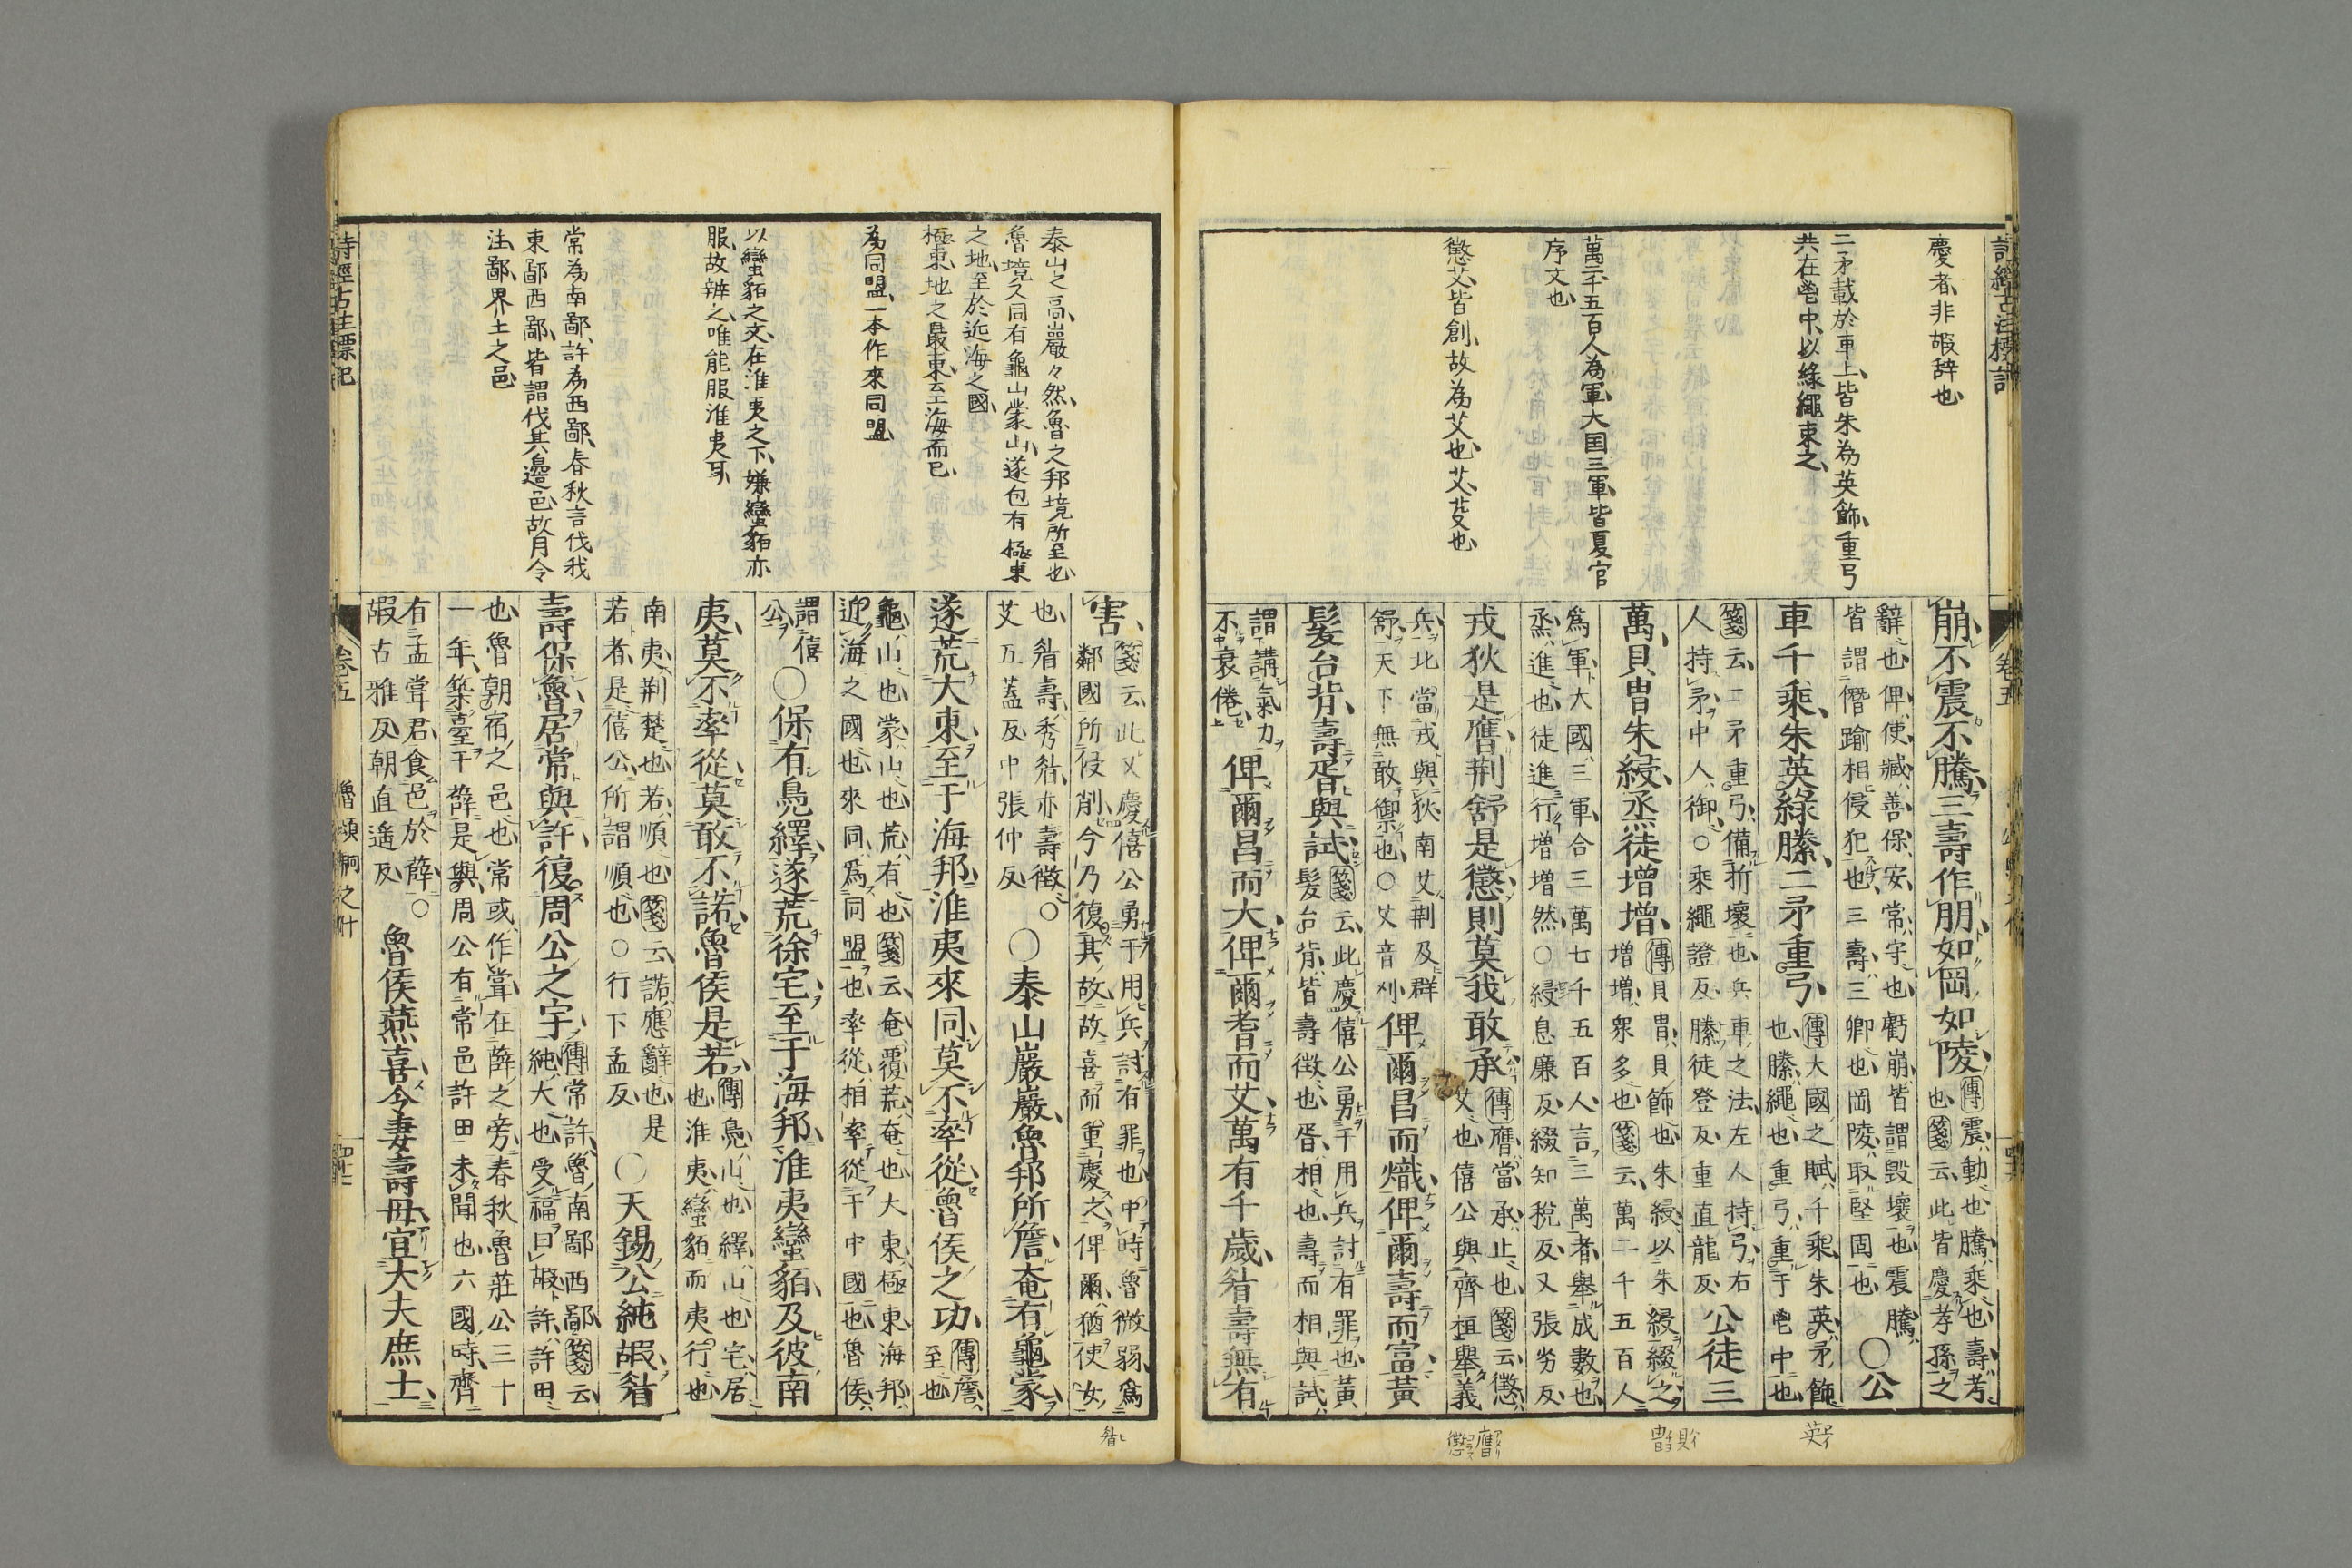 詩經古注標記
慶者、非嘏辞也
二矛載於車上、皆朱為英飾、重弓
共在鬯中、以綠繩束之、
萬二千五百人為軍、大国三軍、皆夏官
序文也
懲艾、皆創、故為艾也、艾、艾也
卷五
崩、不震不騰、三壽作朋、如岡如陵、傳震、動也、騰、乘也、壽、考
也、箋云、此皆慶孝孫之
辭也、俾、使、臧、善、保、安、常、守也、虧崩、皆謂毀壞也、震騰、
皆謂僭踰相侵犯也、三壽、三卿也、岡陵、取堅固也、
○公
車千乘、朱英綠縢、二矛重弓、傳大國之賦、千乘、朱英、矛飾
也、縢、繩也、重弓、重于鬯中也、
箋云、二矛重弓、備折壞也、兵車之法、左人持弓、右
人持矛、中人御、○乘繩證反、縢徒登反、重直龍反、
公徒三
萬、貝冑朱綅、烝徒增增、傳貝冑、貝飾也、朱綅、以朱綅綴之、
增增、衆多也、箋云、萬二千五百人
爲軍、大國三軍、合三萬七千五百人、言三萬者、舉成數也、
烝、進也、徒進行增增然、○綅息廉反、綴知稅反、又張劣反、
戎狄是膺、荊舒是懲、則莫我敢承、傳膺、當、承、止也、箋云、懲、
艾也、僖公與齊桓舉義
兵、北當戎與狄、南艾荊及群
舒、天下無敢禦也、○艾音刈、
俾爾昌而熾、俾爾壽而富、黃
髮台背、壽胥與試、箋云、此慶僖公勇于用兵、討有罪也、黃
髮台背、皆壽徵也、胥、相也、壽而相與試、
謂講氣力、
不衰倦、
俾爾昌而大、俾爾耆而艾、萬有千歲、眉壽無有
泰山之高、巖々然、魯之邦境所至也
魯境又同有龜山蒙山、遂包有極東
之地、至於近海之國、
極東、地之最東、至海而已、
為同盟、一本作來同盟、
以蠻貊之文、在淮夷之下、嫌蠻貊亦
服、故辨之、唯能服淮夷耳、
常為南鄙、許為西鄙、春秋言伐我
東鄙西鄙、皆謂伐其邊邑、故月令
注、鄙、界土之邑
害、箋云、此又慶僖公勇于用兵、討有罪也、中時魯微弱、爲
鄰國所侵削、今乃復其故、故喜而重慶之、俾爾、猶使女
也、眉壽、秀眉、亦壽徵、○
艾五蓋反、中張仲反、
○泰山巖巖、魯邦所詹、奄有龜蒙、
遂荒大東、至于海邦、淮夷來同、莫不率從、魯侯之功、傳詹、
至也、
龜、山也、蒙、山也、荒、有也、箋云、奄、覆、荒、奄也、大東、極東、海邦、
近海之國也、來同、爲同盟也、率從、相率從于中國也、魯侯、
謂僖
公、
○保有鳧繹、遂荒徐宅、至于海邦、淮夷蠻貊、及彼南
夷、莫不率從、莫敢不諾、魯侯是若、傳鳧、山也、繹、山也、宅、居
也、淮夷、蠻貊而夷行也、
南夷、荊楚也、若、順也、箋云、諾、應辭也、是
若者、是僖公所謂順也、○行下孟反、
○天錫公純嘏、眉
壽保魯、居常與許、復周公之宇、傳常許、魯南鄙西鄙、箋云、
純、大也、受福曰嘏、許、許田
也、魯朝宿之邑也、常或作嘗、在薛之旁、春秋魯莊公三十
一年、築臺于薛、是與、周公有常邑許田、未聞也、六國時、齊
有孟嘗君、食邑於薛、○
嘏古雅反、朝直遙反、
魯侯燕喜、令妻壽母、宜大夫庶士、
詩經古注標記
卷五
魯頌駉之什